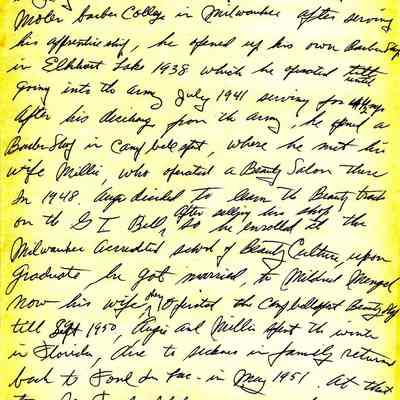 Moler Barber College in Milwaukee after serving
his apprenticeship, he opened up his own Barber Shop
in Elkhart Lake 1938 which he operated until
going into the army July 1941 serving for 4 1/2
After his discharg from the army, he opened a
Barber Shop in Campbellsport, where he met his
wife Millie, who operated a Beauty Salon there
In 1948. Augie decided to learn the Beauty trade
on the G I Bill, After selling his shop so he enrolled at the
Milwaukee Accredited school of Beauty Culture, upon
graduate he got married, to Mildred Mengel
now his wife, they operated the Campbellsport Beauty Shop
till Sept 1950, Augie and Millie spent the winter
in Florida, due to sickness in family return
back to Fond du Lac - in May 1951. At that